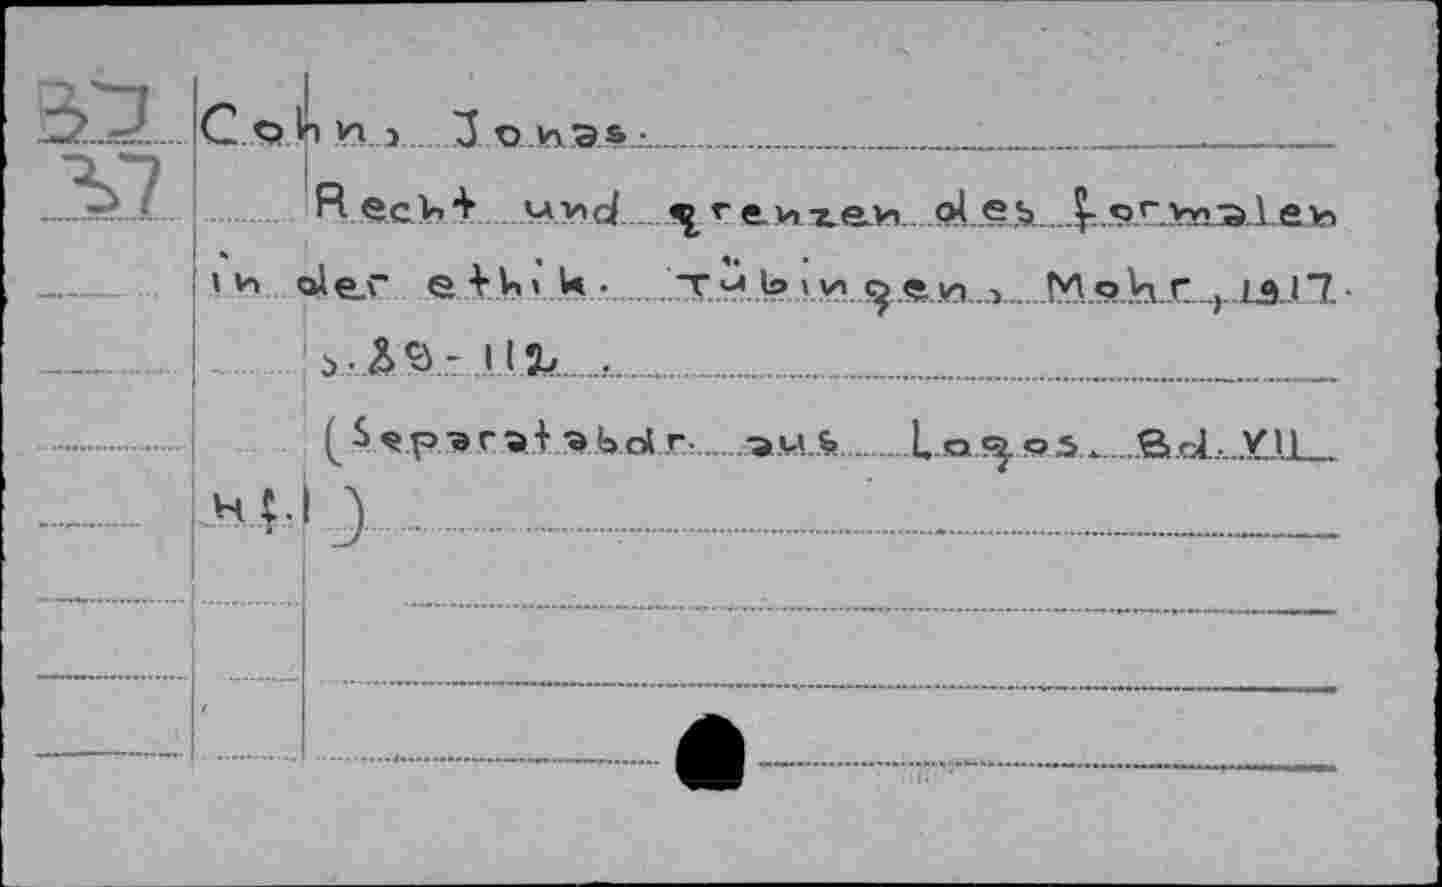 BJ
37
Cohn, Jonas.
Recht und grenzen des formalen
in der ethik. Tübingen, Mohr, 1917.
s. 89-112.
(Separatabdr. aus Logos. Bd. VII.
Hf. 1)